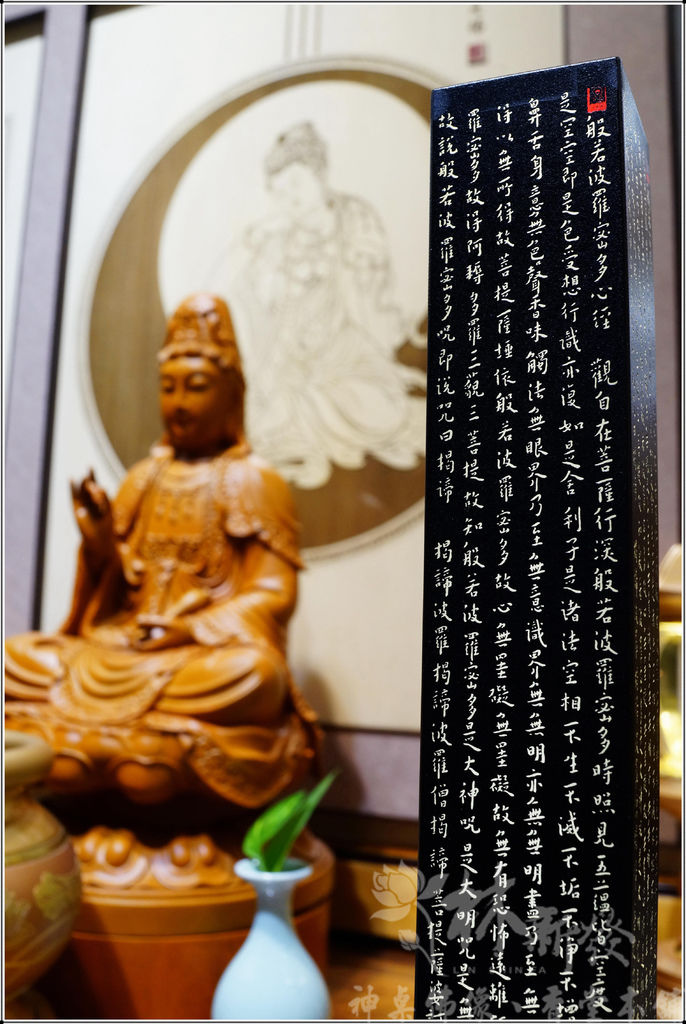 般若波羅蜜多心經 觀自在菩薩行深般若波羅蜜多時照見五蘊皆空度
是空空即是色受想行識亦復如是舍利子是諸法空相不生不滅不垢不淨不增
鼻舌身意無色聲香味觸法無眼界乃至無意識界無無明亦無無明盡乃至無
得以無所得故菩提薩埵依般若波羅蜜多故心無罣礙無罣礙故無有恐怖遠離
羅蜜多故得阿耨多羅三藐三菩提故知般若波羅蜜多是大神咒是大明咒是無
故說般若波羅蜜多咒即說咒曰揭諦 揭諦波羅揭諦波羅僧揭諦菩提薩婆訶
林新發
神桌佛像